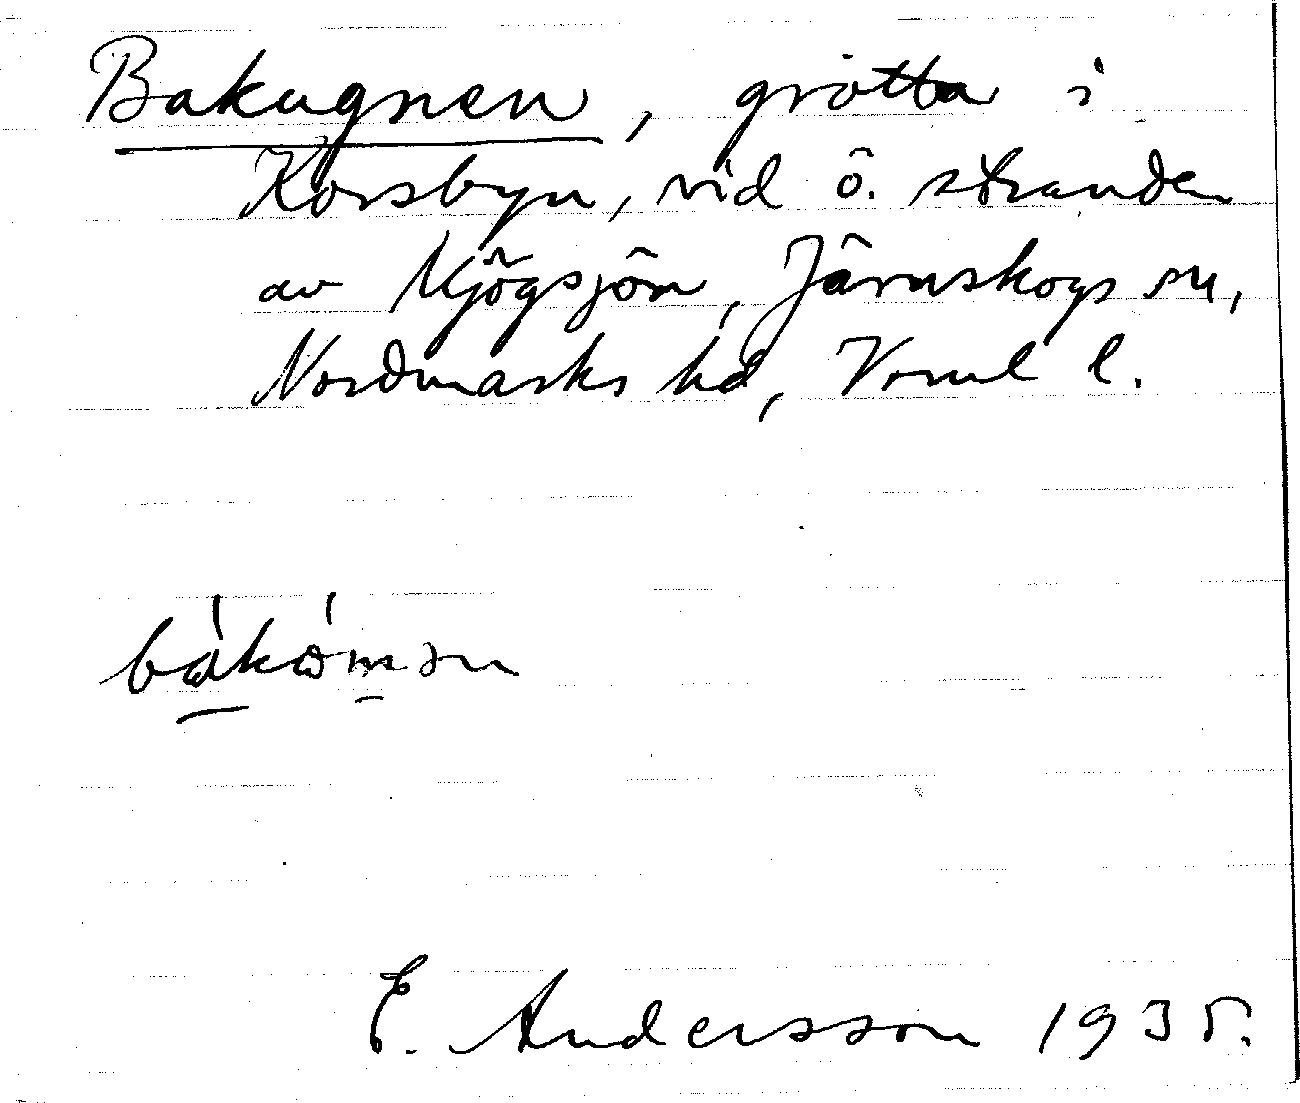 Bakugnen, grotta i
Korsbyn, vid ö. stranden
av Njögsjön, Järnskogs sn,
Nordmarks hd, Vrml l.
E. Andersson 1935.